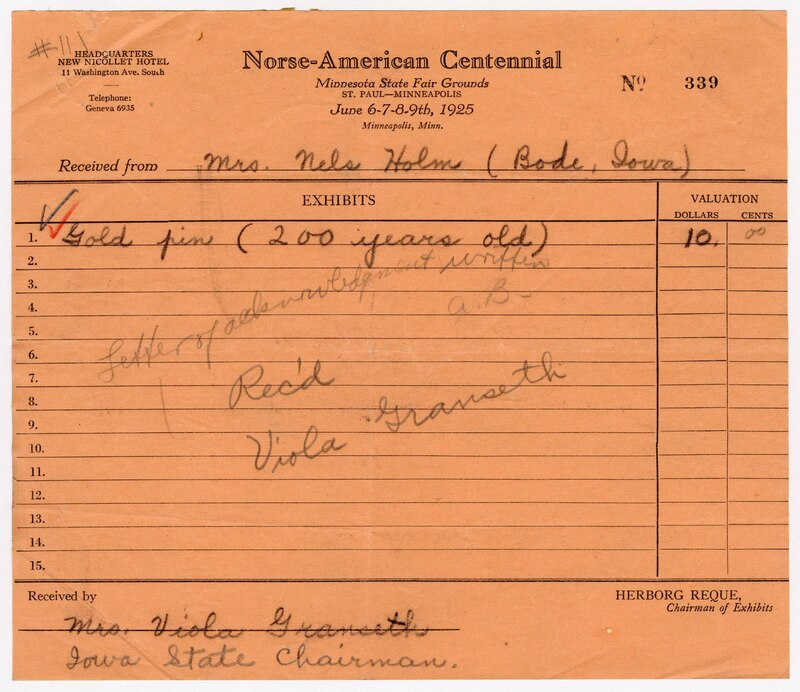 #111
HEADQUARTERS
NEW NICOLLET HOTEL
11 Washington Ave. South
Telephone:
Geneva 6935
Norse-American Centennial
Minnesota State Fair Grounds
ST. PAUL—MINNEAPOLIS
June 6-7-8-9th, 1925
Minneapolis, Minn.
Nº 339
Received from Mrs. Nels Holm (Bode, Iowa)
EXHIBITS
VALUATION
DOLLARS CENTS
1. Gold pin (200 years old) 10. 00
2.
3.
4.
5.
6.
7.
8.
9.
10.
11.
12.
13.
14.
15.
Letter of acknowledgment written
a.B.
Rec'd
Viola Granseth
Received by
Mrs. Viola Granseth
Iowa State Chairman.
HERBORG REQUE,
Chairman of Exhibits